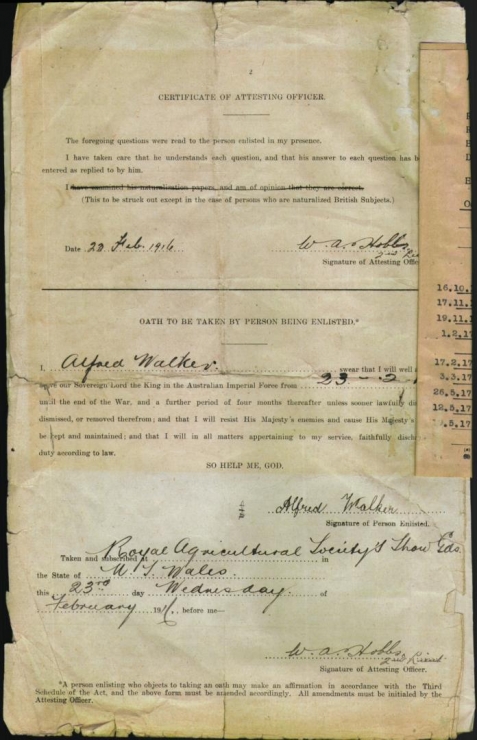 2
CERTIFICATE OF ATTESTING OFFICER.
The foregoing questions were read to the person enlisted in my presence.
I have taken care that he understands each question, and that his answer to each question has b
entered as replied to by him.
I have examined his naturalization papers, and am of opinion that they are correct.
(This to be struck out except in the case of persons who are naturalized British Subjects.)
Date 23 Feb. 1916 W. A. Hobbs
2nd Lieu
Signature of Attesting Office
OATH TO BE TAKEN BY PERSON BEING ENLISTED.*
I, Alfred Walker. swear that I will well a
serve our Sovereign Lord the King in the Australian Imperial Force from 23-2
until the end of the War, and a further period of four months thereafter unless sooner lawfully di
dismissed, or removed therefrom; and that I will resist His Majesty's enemies and cause His Majesty's
be kept and maintained; and that I will in all matters appertaining to my service, faithfully disch
duty according to law.
SO HELP ME, GOD.
Alfred Walker
Signature of Person Enlisted.
Taken and subscribed at Royal Agricultural Society's Show Gds. in
the State of N. S. Wales.
this 23rd day Wednesday. of
February 191 , before me—
W. A. Hobbs
2nd Lieut
Signature of Attesting Officer.
*A person enlisting who objects to taking an oath may make an affirmation in accordance with the Third
Schedule of the Act, and the above form must be amended accordingly. All amendments must be initialed by the
Attesting Officer.
16.10.
17.11.
19.11.
1.2.17
17.2.17
3.3.17
12.5.17
.5.17